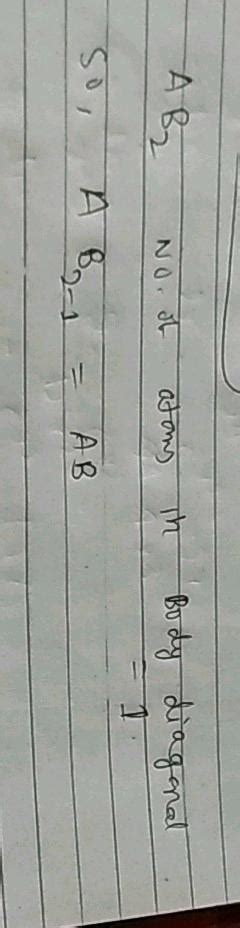 AB₂ No. of atoms in Body diagonal
= 1
So, AB₂₋₁ = AB